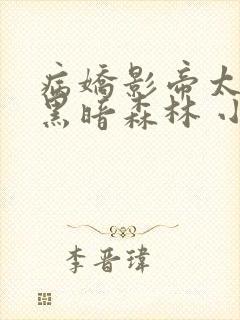 病嬌影帝太
黑暗森林 小
李晋瑋